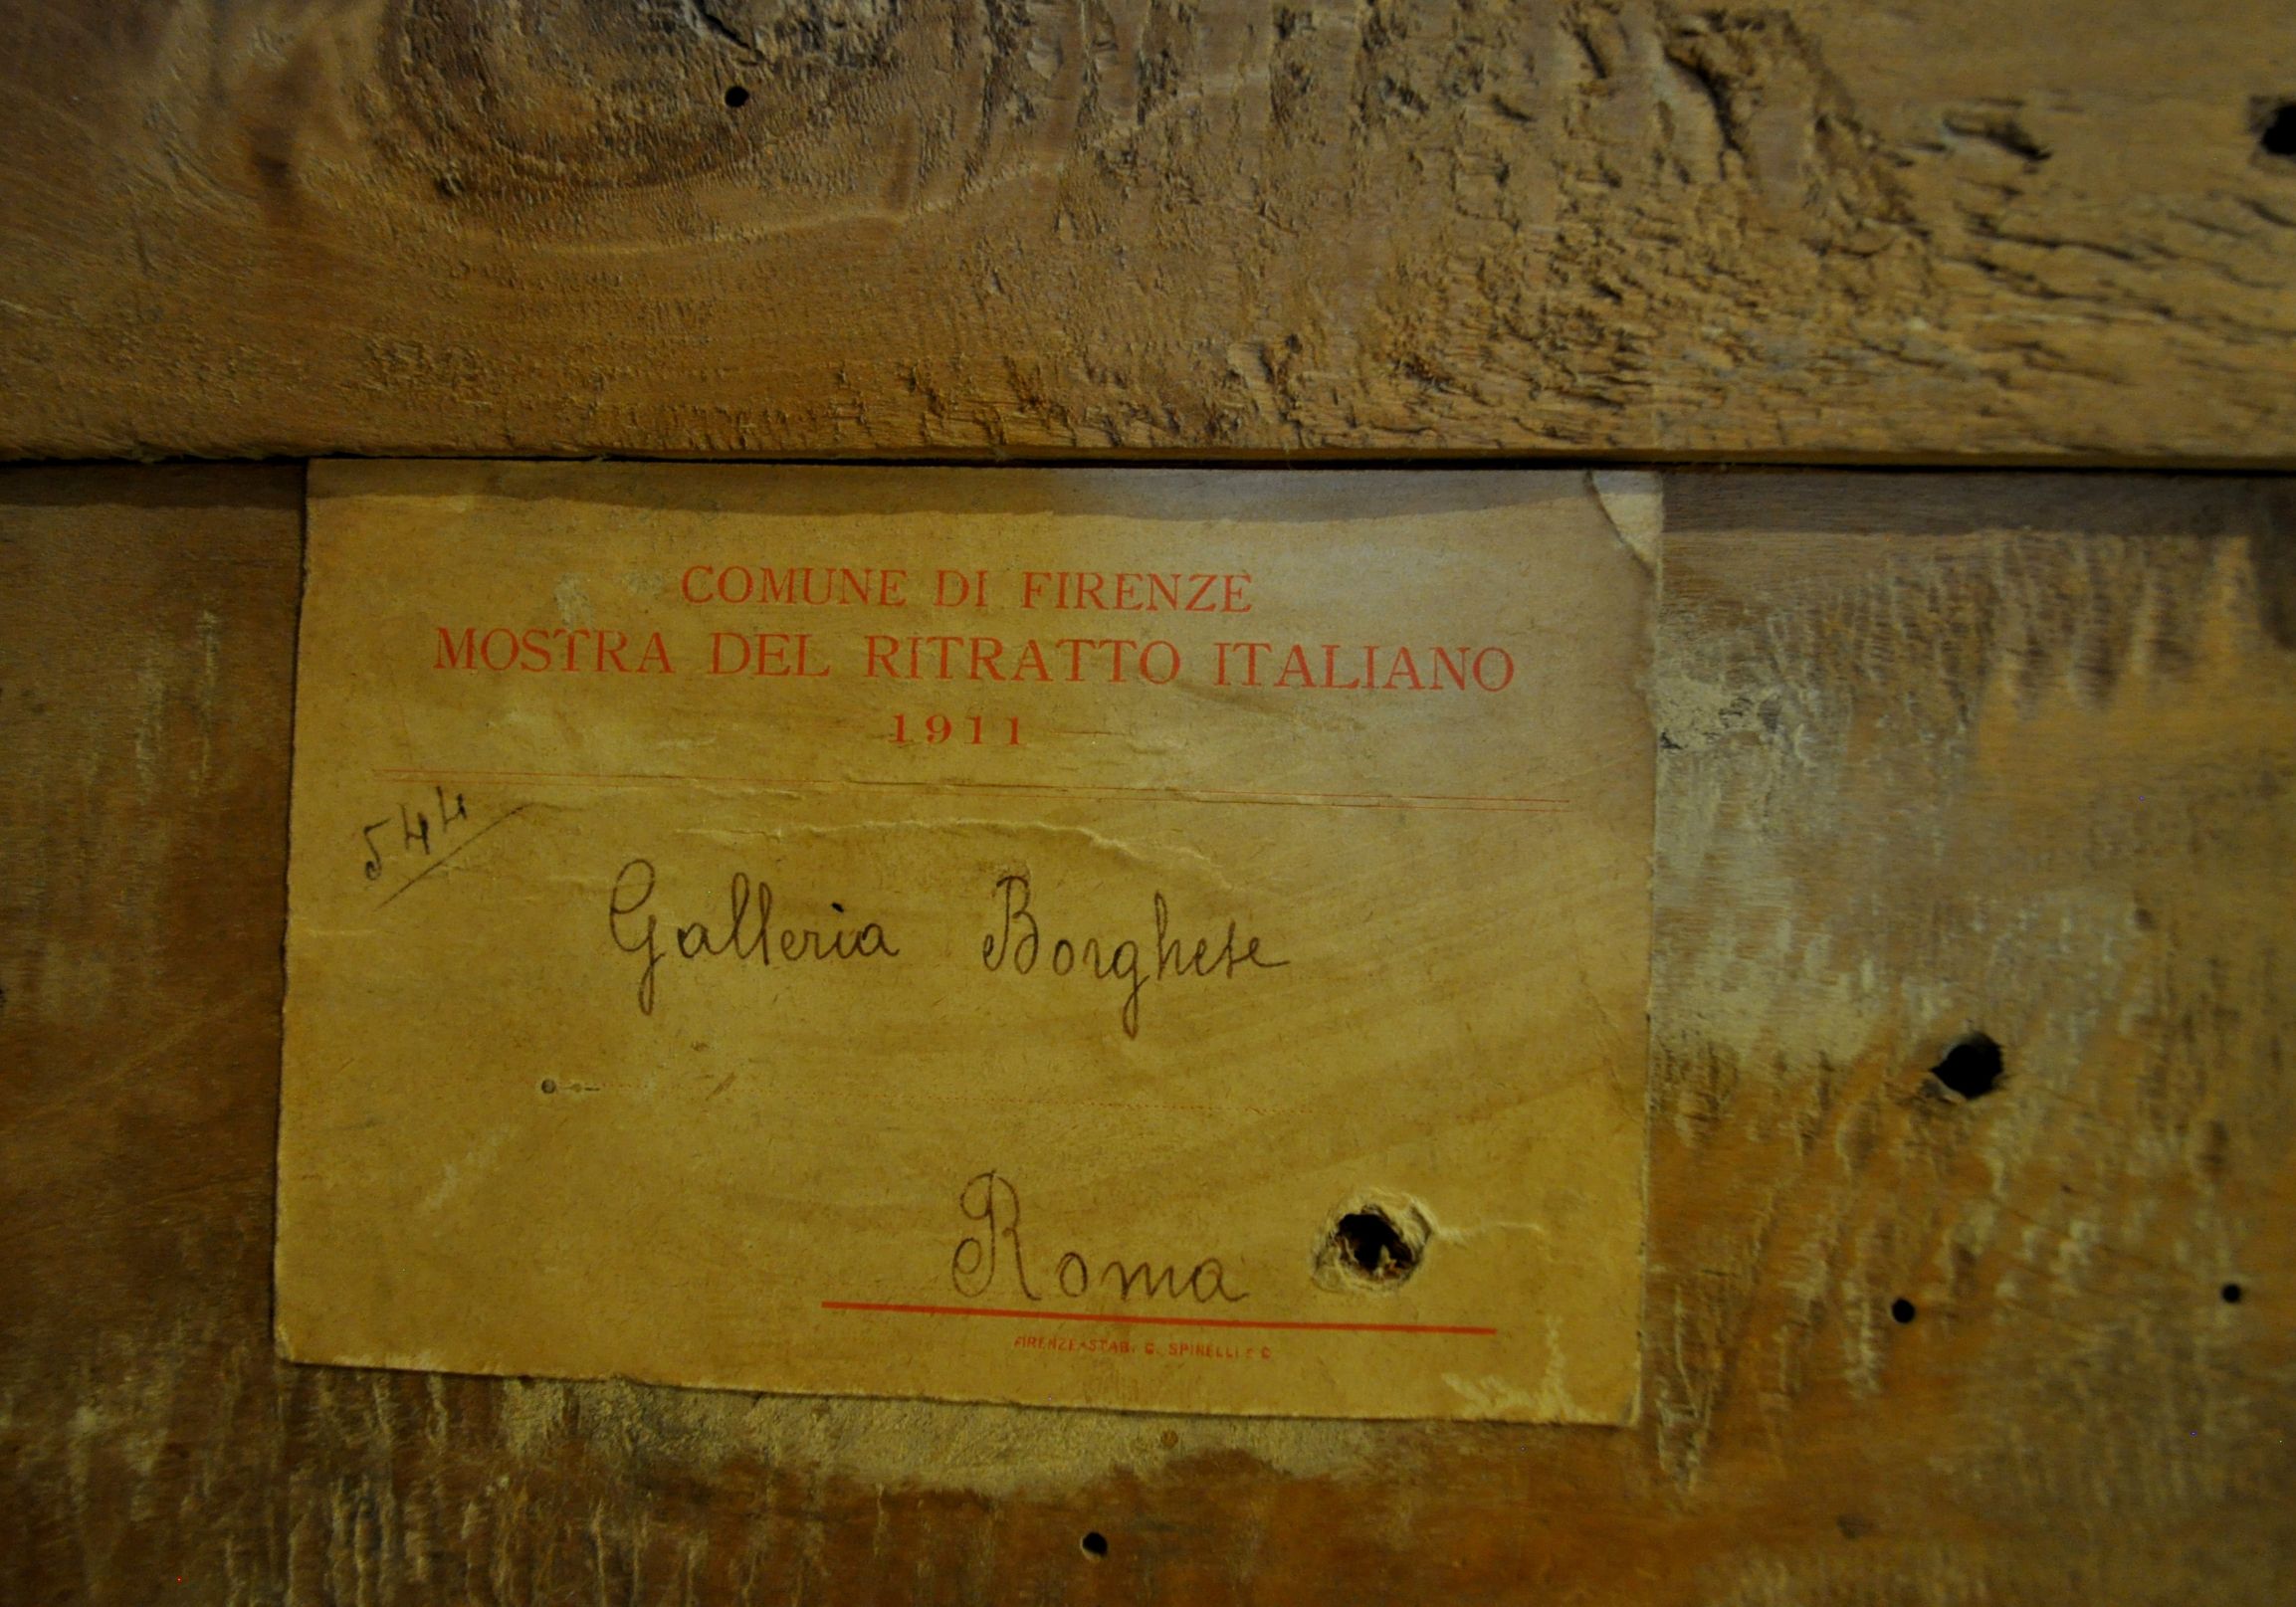 COMUNE DI FIRENZE
MOSTRA DEL RITRATTO ITALIANO
1911
544
Galleria Borghese
Roma
FIRENZE-STAB. G. SPINELLI & C